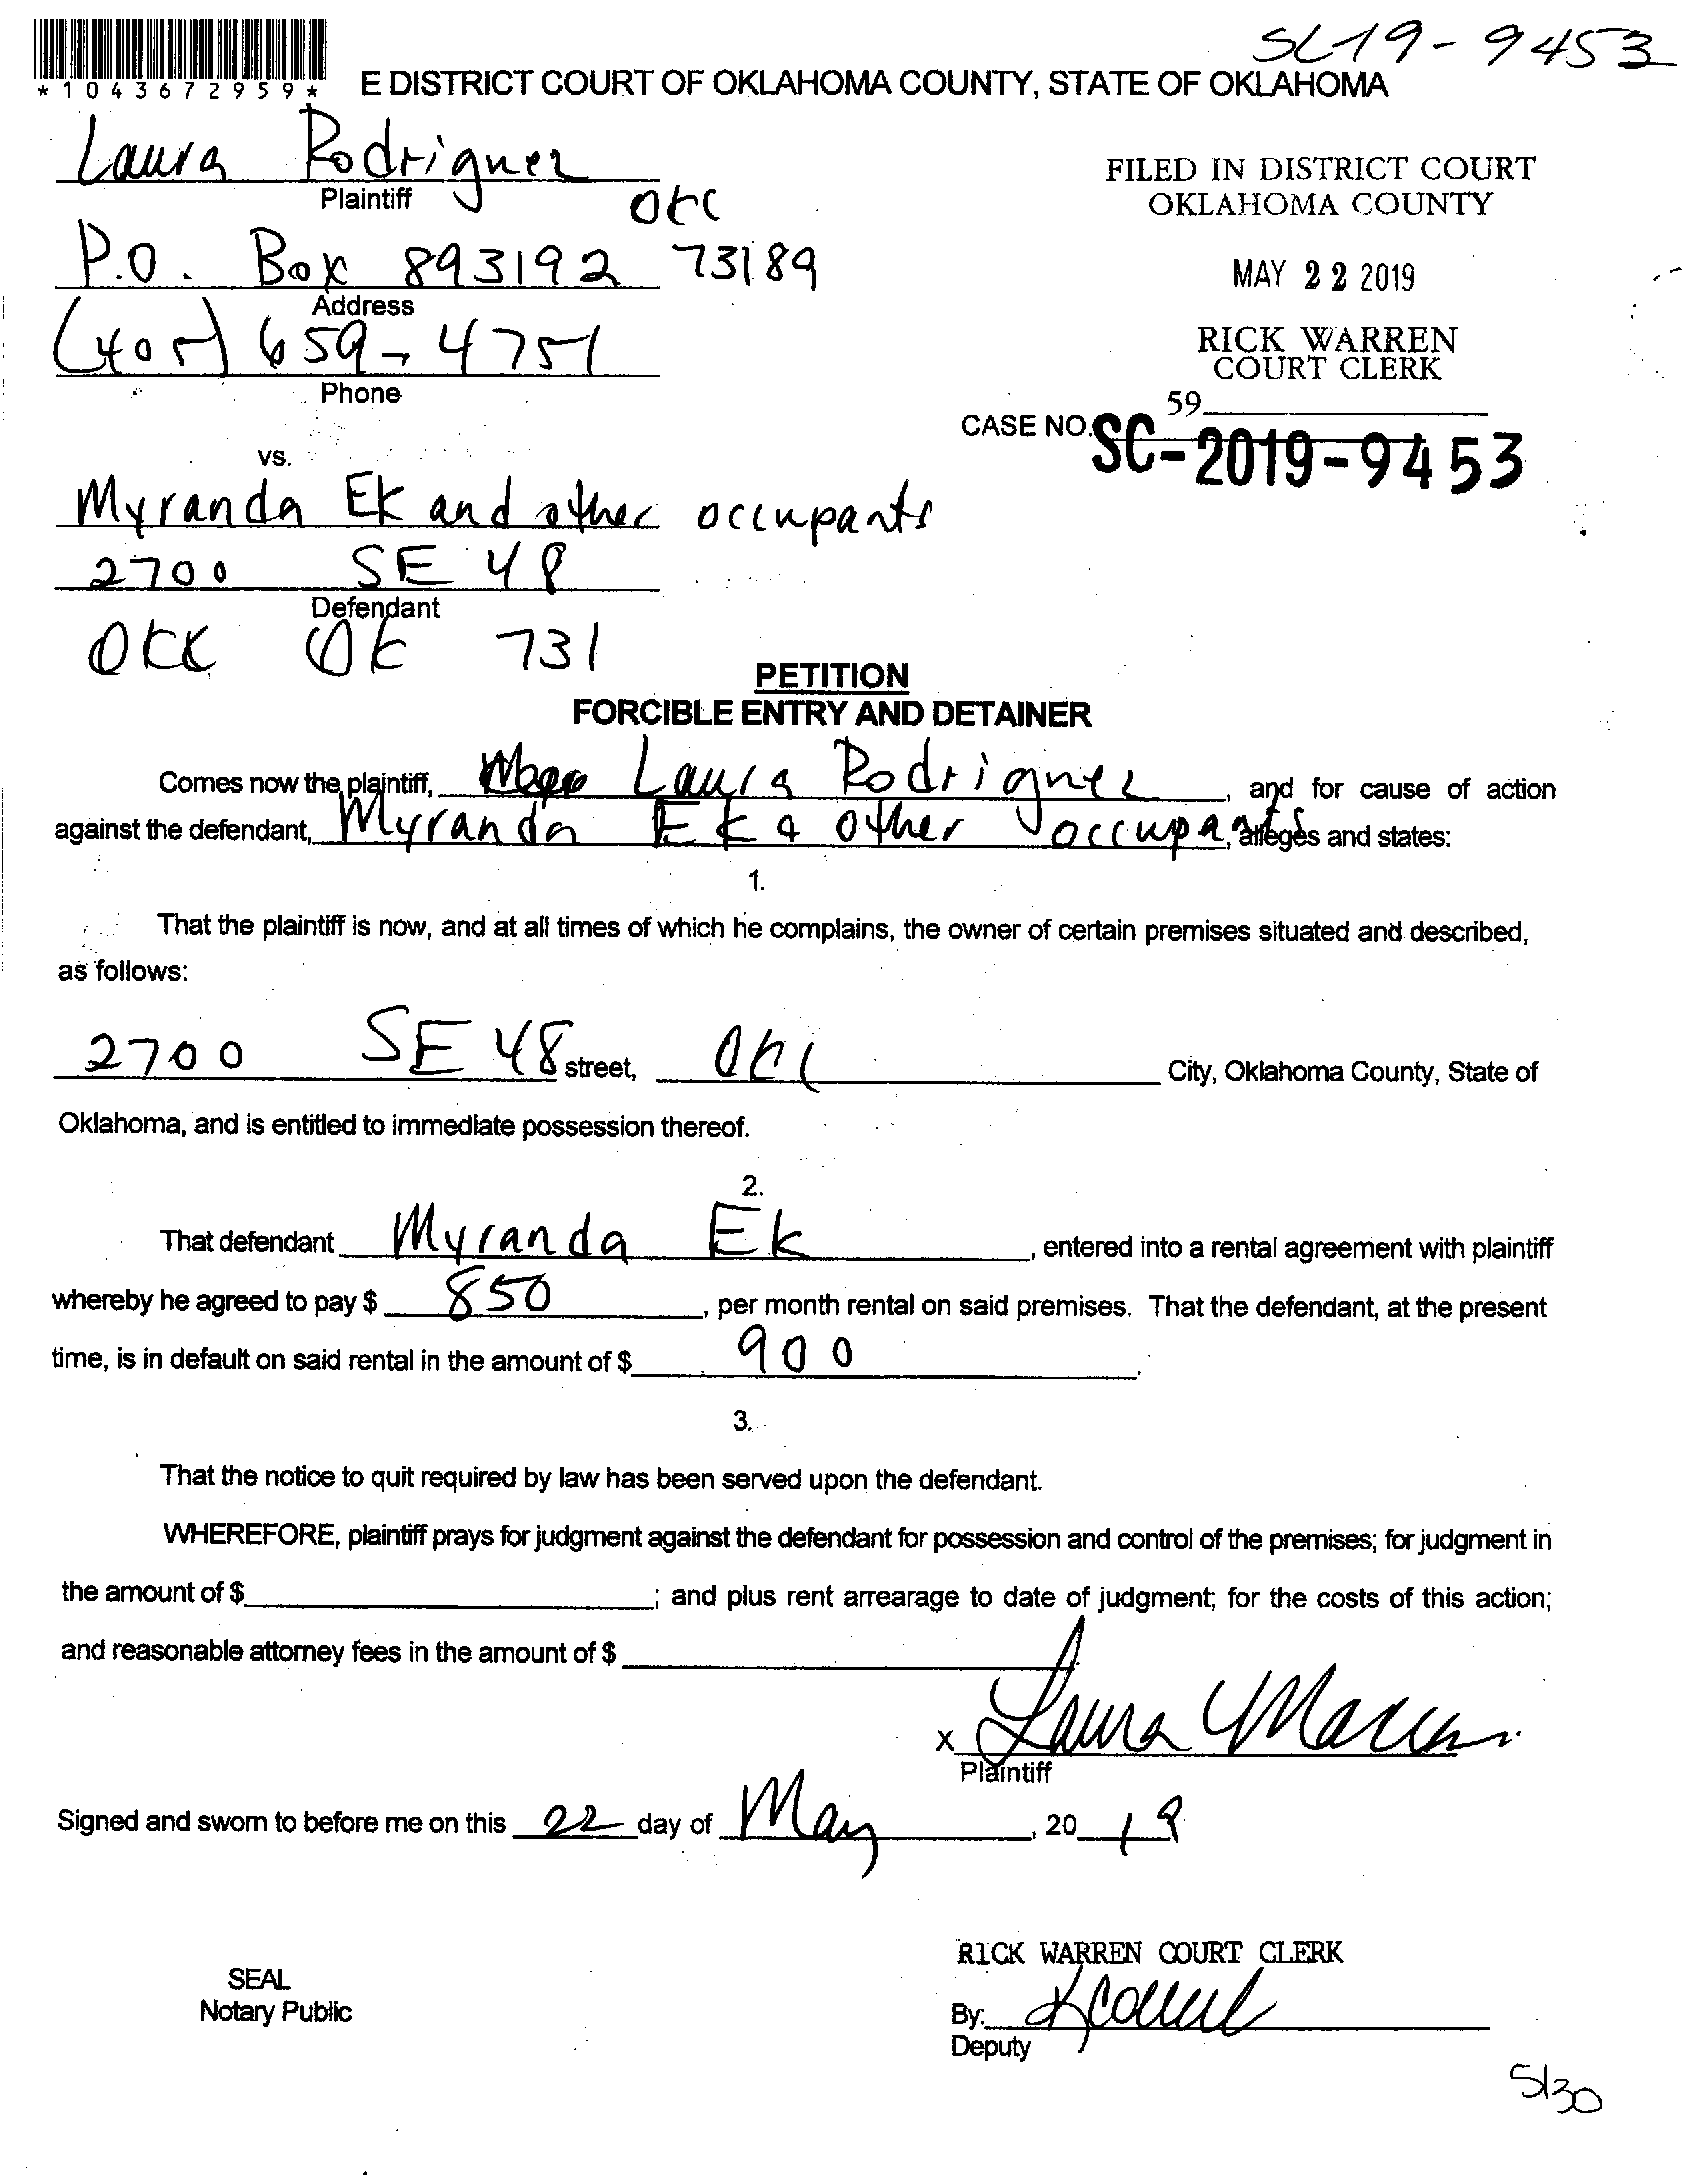 SC-19-9453
*1043672959*
E DISTRICT COURT OF OKLAHOMA COUNTY, STATE OF OKLAHOMA
Laura Rodriguez
Plaintiff
OKC
P.O. Box 893192 73189
Address
(405) 659-4751
Phone
FILED IN DISTRICT COURT
OKLAHOMA COUNTY
MAY 22 2019
RICK WARREN
COURT CLERK
59
CASE NO. SC-2019-9453
vs.
Myranda Ek and other occupants
2700 SE 48
Defendant
OKC OK 731
PETITION
FORCIBLE ENTRY AND DETAINER
Comes now the plaintiff, Laura Rodriguez, and for cause of action
against the defendant, Myranda Ek & other occupants, alleges and states:
1.
That the plaintiff is now, and at all times of which he complains, the owner of certain premises situated and described,
as follows:
2700 SE 48 street, OKC City, Oklahoma County, State of
Oklahoma, and is entitled to immediate possession thereof.
2.
That defendant Myranda Ek, entered into a rental agreement with plaintiff
whereby he agreed to pay $ 850, per month rental on said premises. That the defendant, at the present
time, is in default on said rental in the amount of $ 900.
3.
That the notice to quit required by law has been served upon the defendant.
WHEREFORE, plaintiff prays for judgment against the defendant for possession and control of the premises; for judgment in
the amount of $ ; and plus rent arrearage to date of judgment; for the costs of this action;
and reasonable attorney fees in the amount of $
x Laura
Plaintiff
Signed and sworn to before me on this 22 day of May, 20 19
RICK WARREN COURT CLERK
SEAL
Notary Public
By:
Deputy
5/30